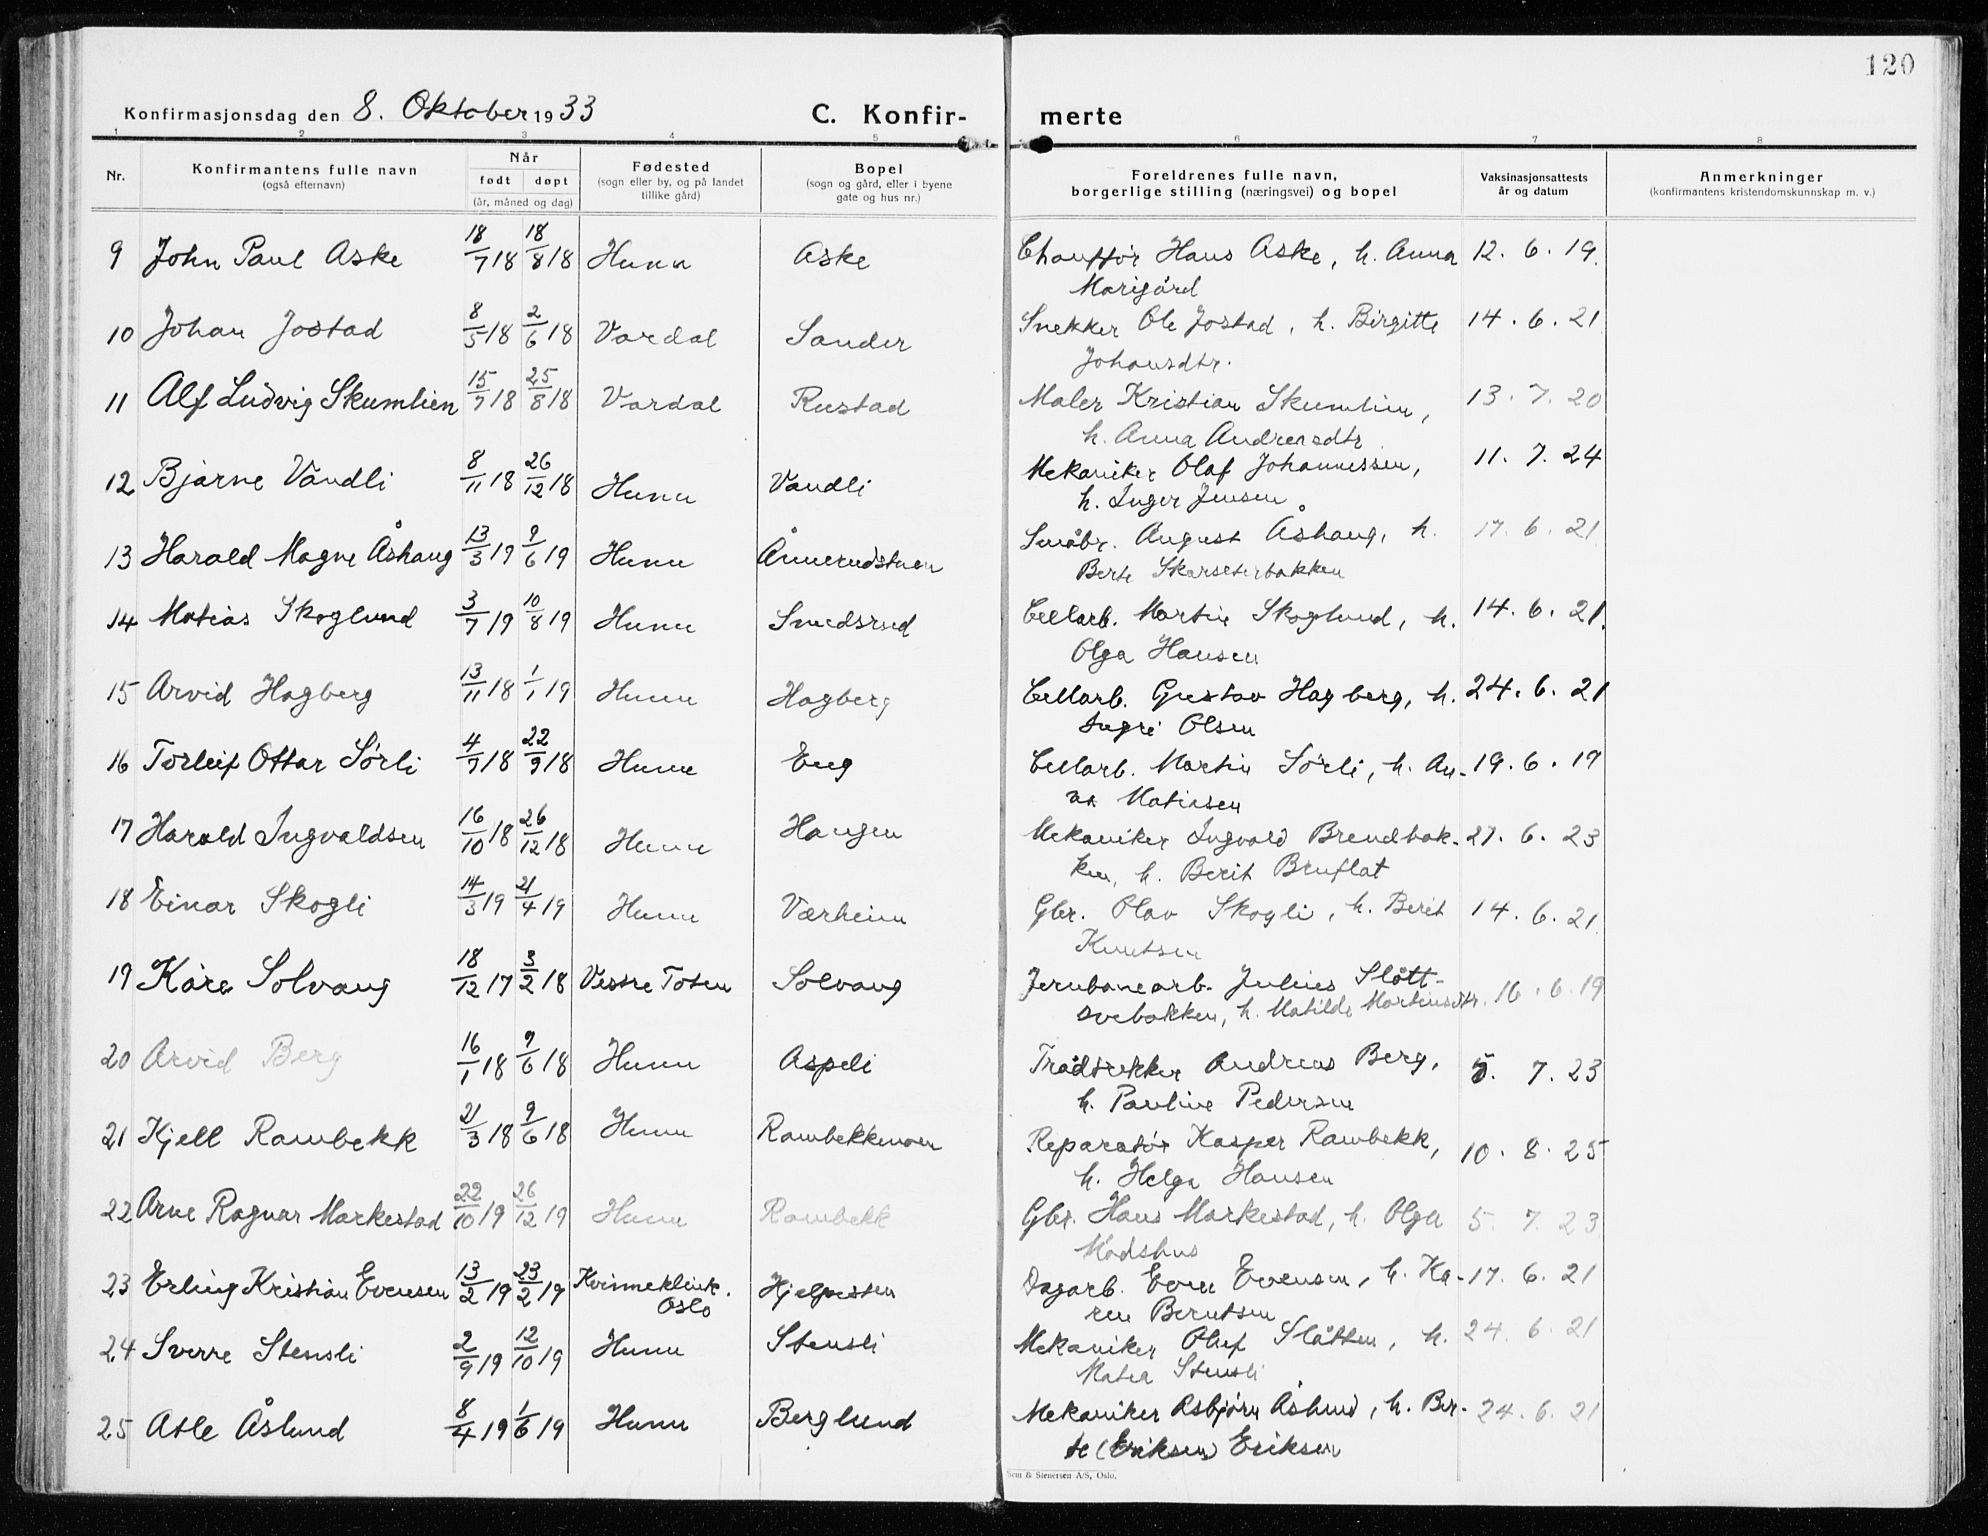 120
Konfirmasjonsdag den 8. Oktober 1933 C. Konfir- merte
1 2 3 4 5 6 7 8
Nr. Konfirmantens fulle navn (også efternavn) Når født døpt (år, måned og dag) Fødested (sogn eller by, og på landet tillike gård) Bopel (sogn og gård, eller i byene gate og hus nr.) Foreldrenes fulle navn, borgerlige stilling (næringsvei) og bopel Vaksinasjonsattests år og datum Anmerkninger (konfirmantens kristendomskunnskap m. v.)
9 John Paul Aske 18/7 18 18/8 18 Hunn Aske Chauffør Hans Aske, h. Anna 12. 6. 19.
Marigård
10 Johan Jostad 8/5 18 2/6 18 Vardal Sander Snekker Ole Jostad, h. Birgitte 14. 6. 21
Johansdtr.
11 Alf Ludvig Skumlien 15/7 18 25/8 18 Vardal Rustad Maler Kristian Skumlien, 13. 7. 20
h. Anna Andreasdtr
12 Bjarne Vandli 8/11 18 26/12 18 Hunn Vandli Mekaniker Olaf Johannessen, 11. 7. 24
h. Inger Jensen
13 Harald Magne Åshaug 13/3 19 9/6 19 Hunn Ånnerudstuen Småbr. August Åshaug, h. 17. 6. 21
Berte Skarseterbakken
14 Matias Skoglund 3/7 19 10/8 19 Hunn Smedsrud Cellarb. Martin Skoglund, h. 14. 6. 21.
Olga Hansen
15 Arvid Hagberg 13/11 18 1/1 19 Hunn Hagberg Cellarb. Gustav Hagberg, h. 24. 6. 21
Ingri Olsen
16 Torleif Ottar Sørli 4/7 18 22/9 18 Hunn Eng Cellarb. Martin Sørli, h. An- 19. 6. 19
na Matiasen
17 Harald Ingvaldsen 16/10 18 26/12 18 Hunn Haugen Mekaniker Ingvald Brendbak- 27. 6. 23
ken, h. Berit Bruflat
18 Einar Skogli 14/3 19 21/4 19 Hunn Værheim Gbr. Olav Skogli, h. Berit 14. 6. 21
Knutsen
19 Kåre Solvang 18/12 17 3/2 18 Vestre Toten Solvang Jernbanearb. Julius Slått- 16. 6. 19
svebakken, h. Matilde Martinsdtr.
20 Arvid Berg 16/1 18 9/6 18 Hunn Aspeli Trådtrekker Andreas Berg, 5. 7. 23
h. Pauline Pedersen
21 Kjell Rambekk 21/3 18 9/6 18 Hunn Rambekkmoen Reparatør Kasper Rambekk, 10. 8. 25
h. Helga Hansen
22 Arne Ragnar Markestad 22/10 19 26/12 19 Hunn Rambekk Gbr. Hans Markestad, h. Olga 5. 7. 23
Madshus
23 Erling Kristian Evensen 13/2 19 23/2 19 Kvinneklink. Oslo Hjelpesten Dagarb. Even Evensen, h. Ka- 17. 6. 21
ren Berntsen
24 Sverre Stensli 2/9 19 12/10 19 Hunn Stensli Mekaniker Oluf Slåtten, h. 24. 6. 21
Matea Stensli
25 Atle Åslund 8/4 19 1/6 19 Hunn Berglund Mekaniker Asbjørn Åslund, h. Ber- 24. 6. 21
te (Eriksen) Eriksen
Sem & Stenersen A/S, Oslo.